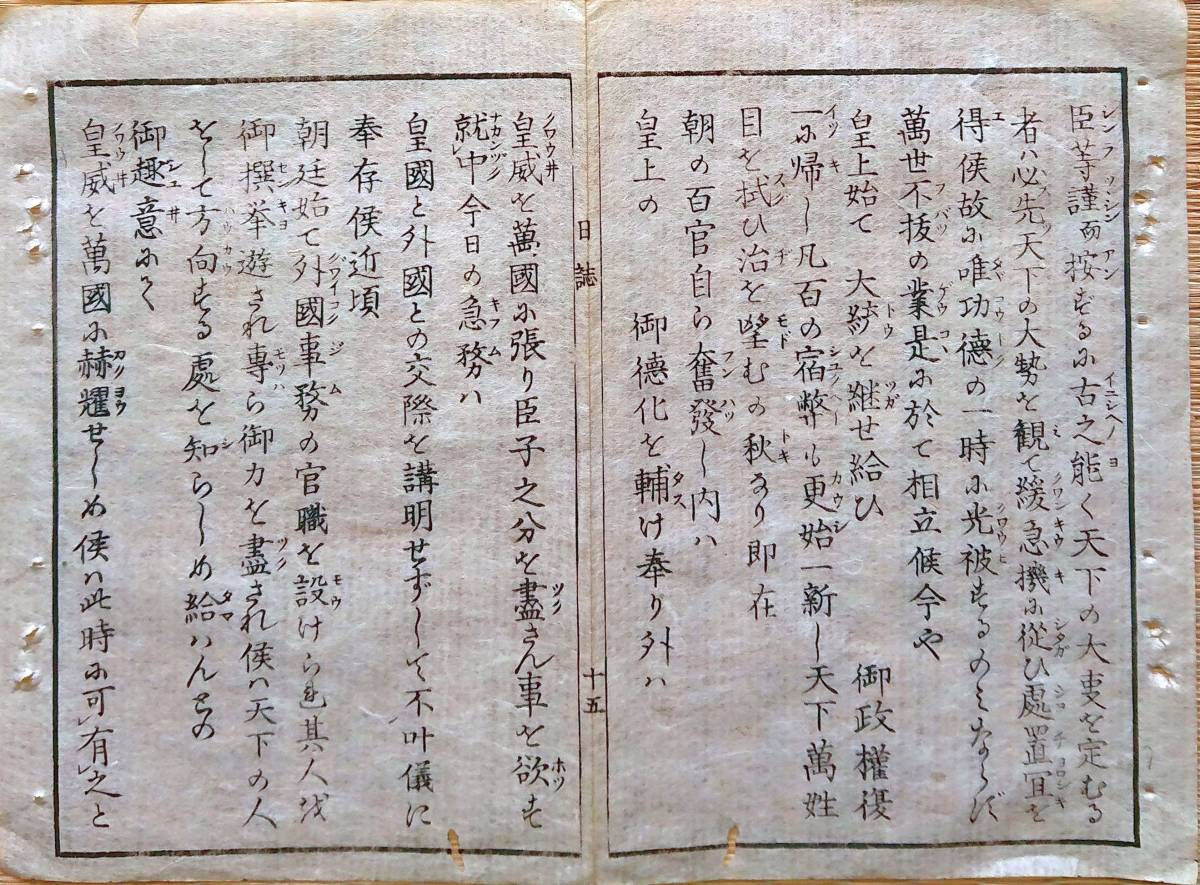 臣等謹而按ずるに古之能く天下の大事を定むる
者ハ必先天下の大勢を観て緩急機に從ひ處置宜を
得候故に唯功德の一時に光被するのみならず
萬世不抜の業是に於て相立候今や
皇上始て 大統を継せ給ひ 御政權復
一に帰し凡百の宿弊も更始一新し天下萬姓
目を拭ひ治を望むの秋なり即在
朝の百官自ら奮發し内ハ
皇上の 御德化を輔け奉り外ハ
日誌 十五
皇威を萬國に張り臣子之分を盡さん事を欲す
就中今日の急務ハ
皇國と外國との交際を講明せずして不叶儀に
奉存候近頃
朝廷始て外國事務の官職を設けられ其人を
御撰挙遊され專ら御力を盡され候ハ天下の人
をして方向する處を知らしめ給ハんとの
御趣意にて
皇威を萬國に赫耀せしめ候ハ此時に可有之と